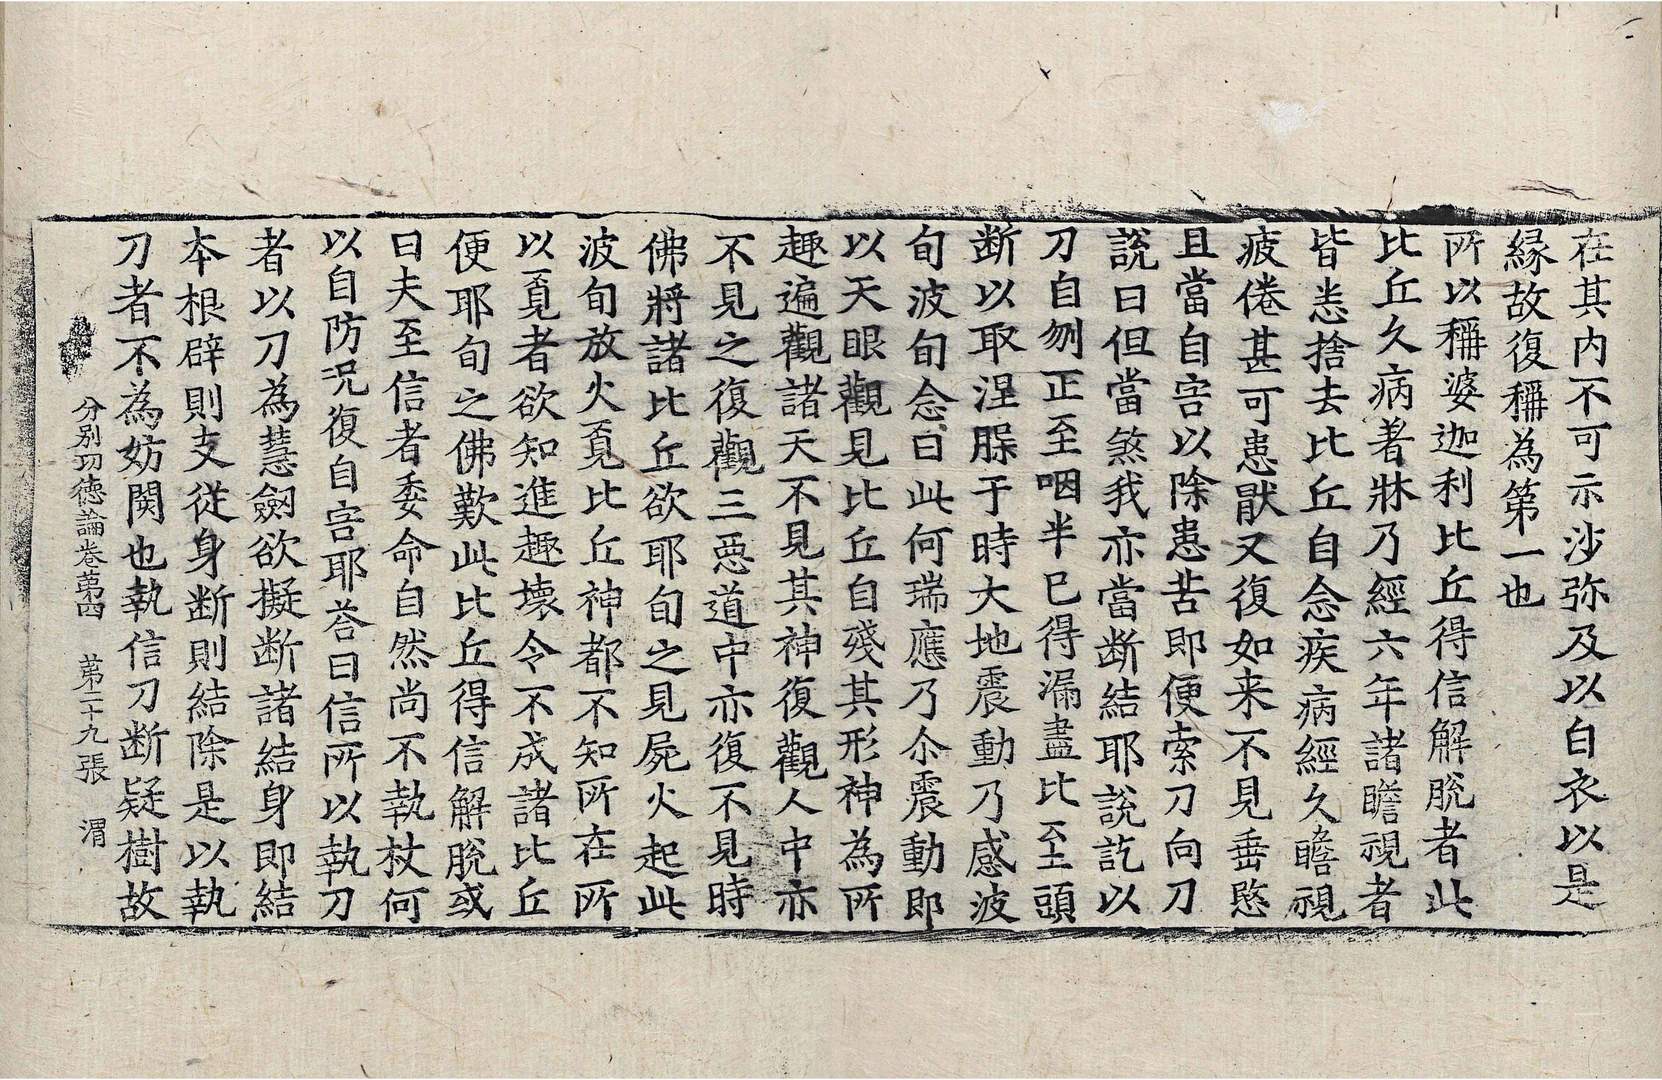 在其内不可示沙弥及以白衣以是
縁故復稱為第一也
所以稱婆迦利比丘得信解脫者此
比丘久病著牀乃經六年諸瞻視者
皆恙捨去比丘自念疾病經久瞻視
疲倦甚可患猒又復如来不見垂愍
且當自害以除患苦即便索刀向刀
說曰但當煞我亦當當断結耶說訖以
刀自刎正至咽半已得漏盡比至頭
断以取涅脲于時大地震動乃感波
旬波旬念曰此何瑞應乃尒震動即
以天眼觀見比丘自殘其形神為所
趣遍觀諸天不見其神復觀人中亦
不見之復觀三惡道中亦復不見時
佛將諸比丘欲耶旬之見屍火起此
波旬放火覔比丘神都不知所在所
以覔者欲知進趣壞令不成諸比丘
便耶旬之佛歎此比丘得信解脫或
曰夫至信者委命自然尚不執杖何
以自防况復自害耶荅曰信所以執刀
者以刀為慧劒欲擬断諸結身即結
本根辟則支従身断則結除是以執
刀者不為妨関也執信刀断疑樹故
分别功德論卷苐四 苐二十九張 渭